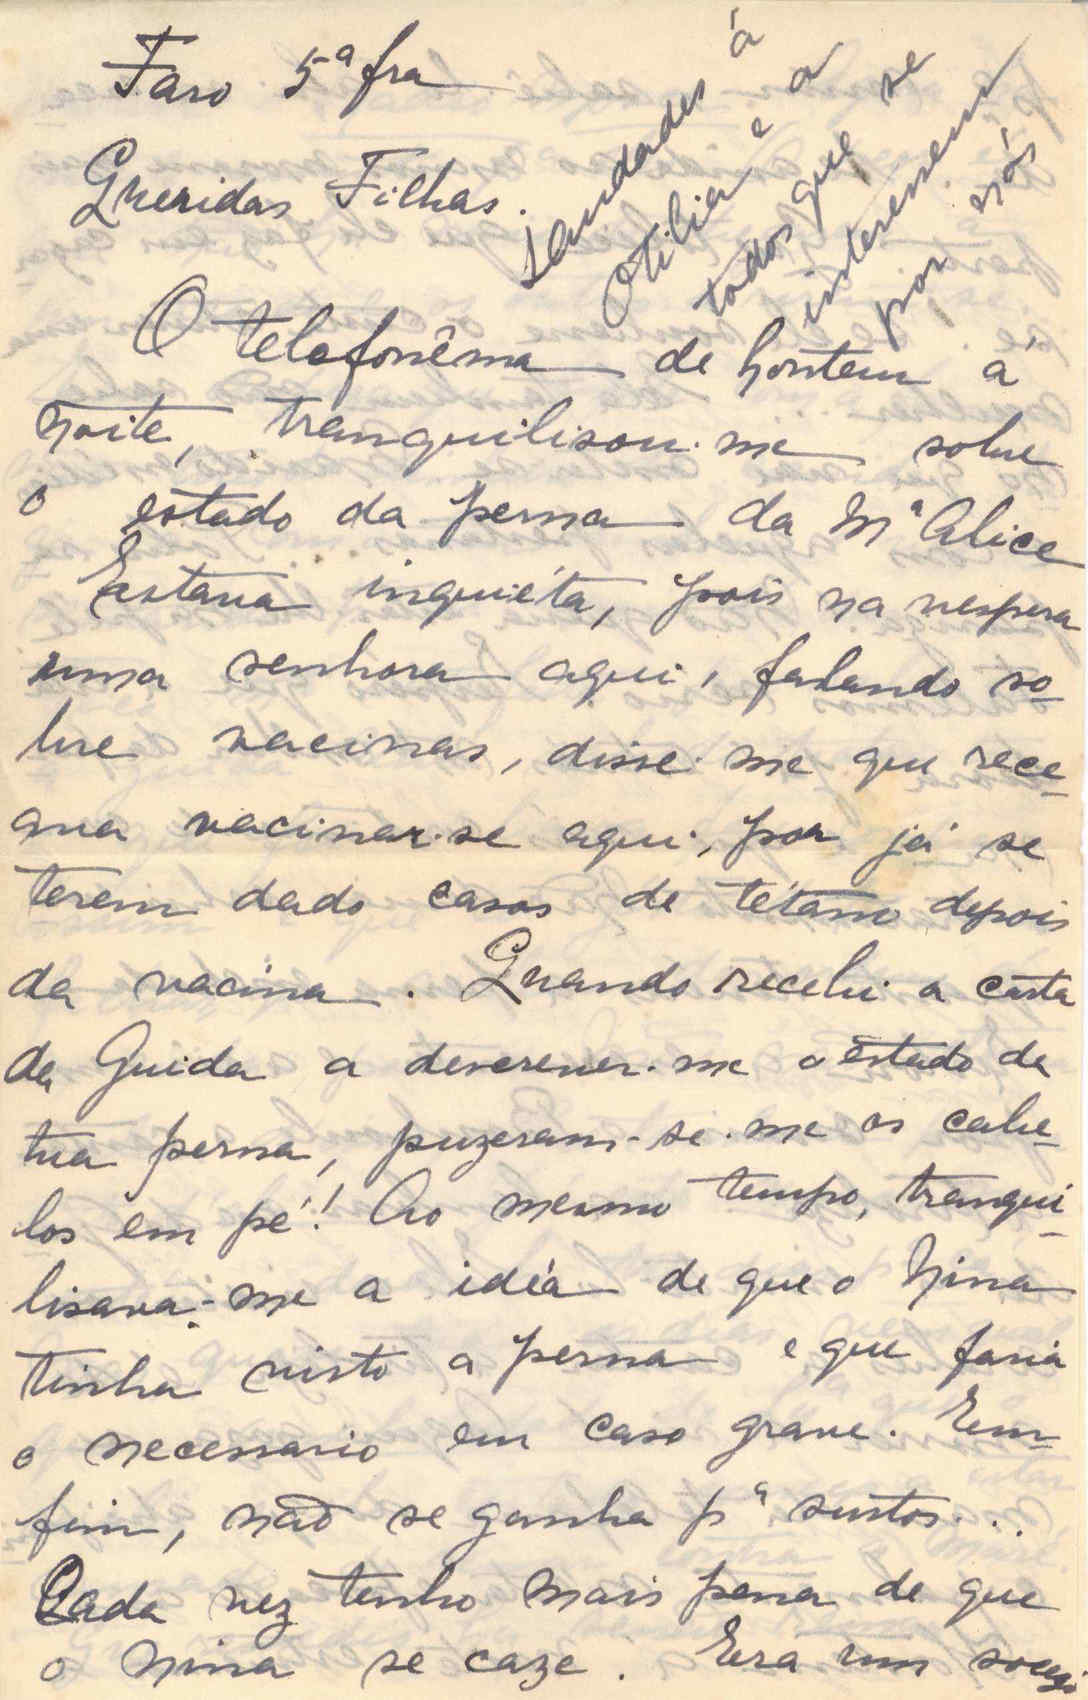 Faro 5ª fra
Queridas Filhas.
Saudades á
Otilia e a
todos que se
interessem
por nós
O telefonêma de hontem á
noite, tranquilisou-me sobre
o estado da perna da Mª Alice
Estava inquiéta, pois na vespera
uma senhora aqui, falando so-
bre vacinas, disse-me que rece-
ava vacinar-se aqui, por já se
terem dado casos de tétano depois
da vacina. Quando recebi a carta
da Guida a descrever-me o estado da
tua perna, puzeram-se-me os cabe-
los em pé! Ao mesmo tempo, tranqui-
lisava-me a idéa de que o Nina
tinha visto a perna e que faria
o necessario em caso grave. Em-
fim, não se ganha pª sustos...
Cada vez tenho mais pena de que
o Nina se caze. Era um socego